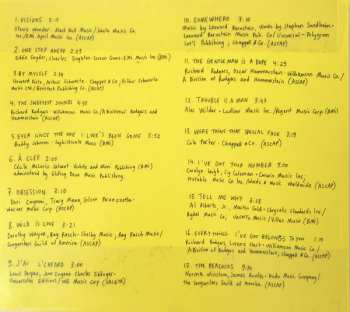 1. VISIONS 5:17
Stevie Wonder. Black Bull Music / Jobete Music Co.
Inc/EMI April Music Inc. (ASCAP)
2. ONE STEP AHEAD 2:29
Eddie Snyder, Charles Singleton
Music Inc (BMI)
3. BY MYSELF
Howard Dietz, Arthur Schwartz. Chappell & Co/Arthur Schwartz
Music Ltd/ Publishing Co. (ASCAP)
4. THE SWEETEST SOUNDS 4:18
Richard Rodgers. Williamson Music Co/A Division of Rodgers and
Hammerstein (ASCAP)
5. EVER SINCE THE ONE I LOVE'S BEEN GONE 5:52
Buddy Johnson. Sophisticate Music (BMI)
6. À CLEF
Cécile McLorin Salvant. and Music (BMI)
administered by Sliding Down Music Publishing.
7. OBSESSION 3:10
Dori Caymmi, Tracy Mann, Gilson Peranzzetta.
Warner Music Corp (ASCAP)
8. WILD IS LOVE 2:21
Dorothy Wayne, Ray Rasch. Shelby Music, Ray Rasch Music/
Songwriters Guild of America (ASCAP)
9. J'AI L'CAFARD
Louis Despax, Jean Eugene Charles Eblinger.
Universelles Editions/ Music Corp (SACEM)
10. SOMEWHERE
Music by Leonard Bernstein, Words by Stephen Sondheim.
Leonard Bernstein Music Pub. Co/ Universal- Polygram
Int'l Publishing, Chappell & Co (ASCAP)
11. THE GENTLEMAN IS A DOPE 4:29
Richard Rodgers, Oscar Hammerstein. Williamson Music Co/
A Division of Rodgers and Hammerstein (ASCAP)
12. TROUBLE IS A MAN
Alec Wilder. Ludlow Music Inc/ Regent Music Corp (BMI)
13. WERE THINE THAT SPECIAL FACE
Cole Porter. Chappell & Co. (ASCAP)
14. I'VE GOT YOUR NUMBER
Carolyn Leigh, Cy Coleman. Carwin Music Inc;
Notable Music Co Inc/ Words & Music Worldwide (ASCAP)
15. TELL ME WHY
Al Alberts, Jr., Martin Gold.
Music Co, Music/ Music (BMI)
16. EVERYTHING I'VE GOT BELONGS TO YOU
Richard Rodgers, Lorenz Hart. Williamson Music Co/
A Division of Rodgers and Hammerstein, Chappell & Co (ASCAP)
17. THE PEACOCKS
Norma Winstone, James Rowles. Music Company/
The Songwriters Guild of America. (ASCAP)